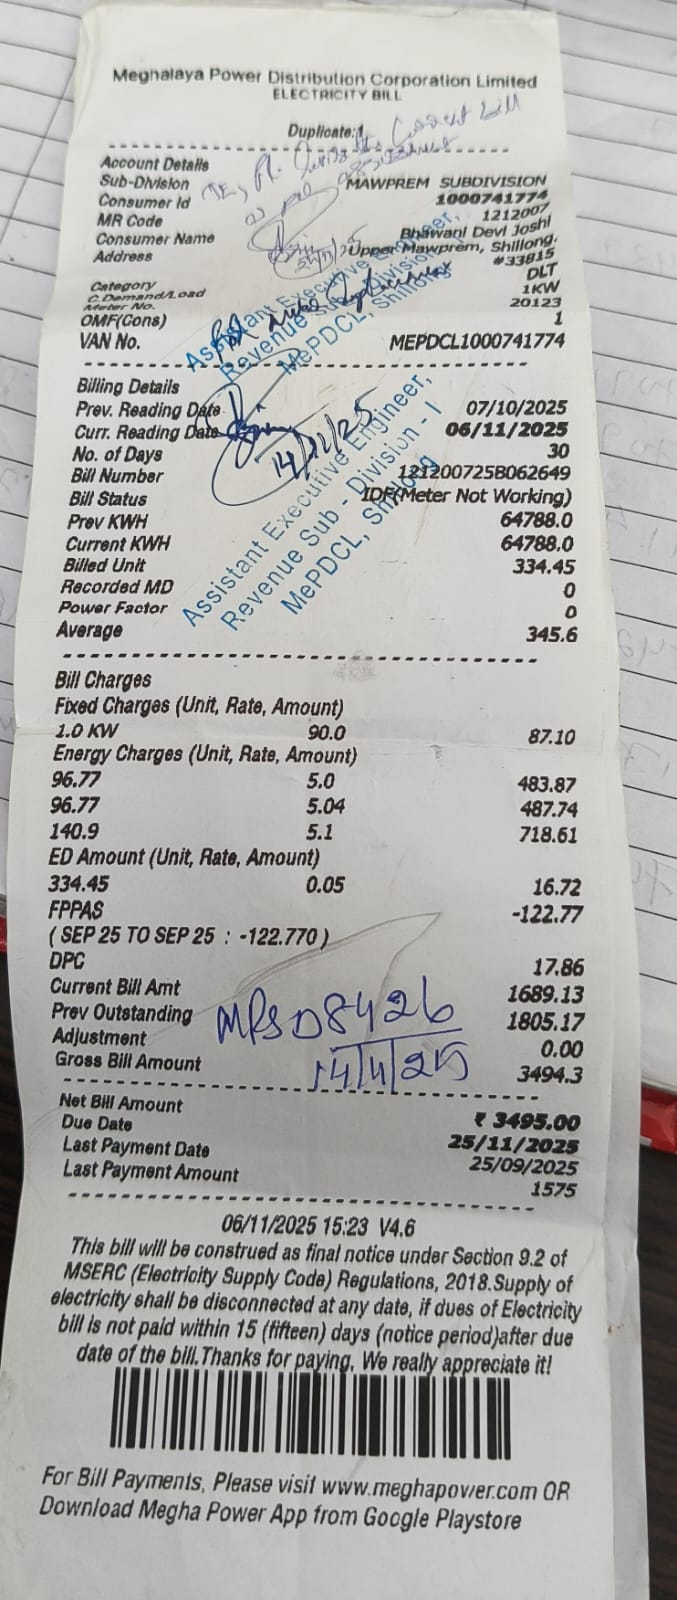 Meghalaya Power Distribution Corporation Limited
ELECTRICITY BILL
Duplicate:1
Current bill
Account Details
Sub-Division MAWPREM SUBDIVISION
Consumer Id 1000741774
MR Code 1212007
Consumer Name Bhawani Devi Joshi
Address Upper Mawprem, Shillong.
#33815
Category DLT
C.Demand/Load 1KW
Meter No. 20123
OMF(Cons) 1
VAN No. MEPDCL1000741774
Assistant Executive Engineer,
Revenue Sub - Division
MePDCL, Shillong
Billing Details
Prev. Reading Date 07/10/2025
Curr. Reading Date 06/11/2025
No. of Days 30
Bill Number 121200725B062649
Bill Status IDF(Meter Not Working)
Prev KWH 64788.0
Current KWH 64788.0
Billed Unit 334.45
Recorded MD 0
Power Factor 0
Average 345.6
Assistant Executive Engineer,
Revenue Sub - Division - I
MePDCL, Shillong
Bill Charges
Fixed Charges (Unit, Rate, Amount)
1.0 KW 90.0 87.10
Energy Charges (Unit, Rate, Amount)
96.77 5.0 483.87
96.77 5.04 487.74
140.9 5.1 718.61
ED Amount (Unit, Rate, Amount)
334.45 0.05 16.72
FPPAS -122.77
( SEP 25 TO SEP 25 : -122.770 )
DPC 17.86
Current Bill Amt 1689.13
Prev Outstanding 1805.17
Adjustment 0.00
Gross Bill Amount 3494.3
8426
14/4/25
Net Bill Amount ₹ 3495.00
Due Date 25/11/2025
Last Payment Date 25/09/2025
Last Payment Amount 1575
06/11/2025 15:23 V4.6
This bill will be construed as final notice under Section 9.2 of
MSERC (Electricity Supply Code) Regulations, 2018.Supply of
electricity shall be disconnected at any date, if dues of Electricity
bill is not paid within 15 (fifteen) days (notice period)after due
date of the bill.Thanks for paying, We really appreciate it!
For Bill Payments, Please visit www.meghapower.com OR
Download Megha Power App from Google Playstore